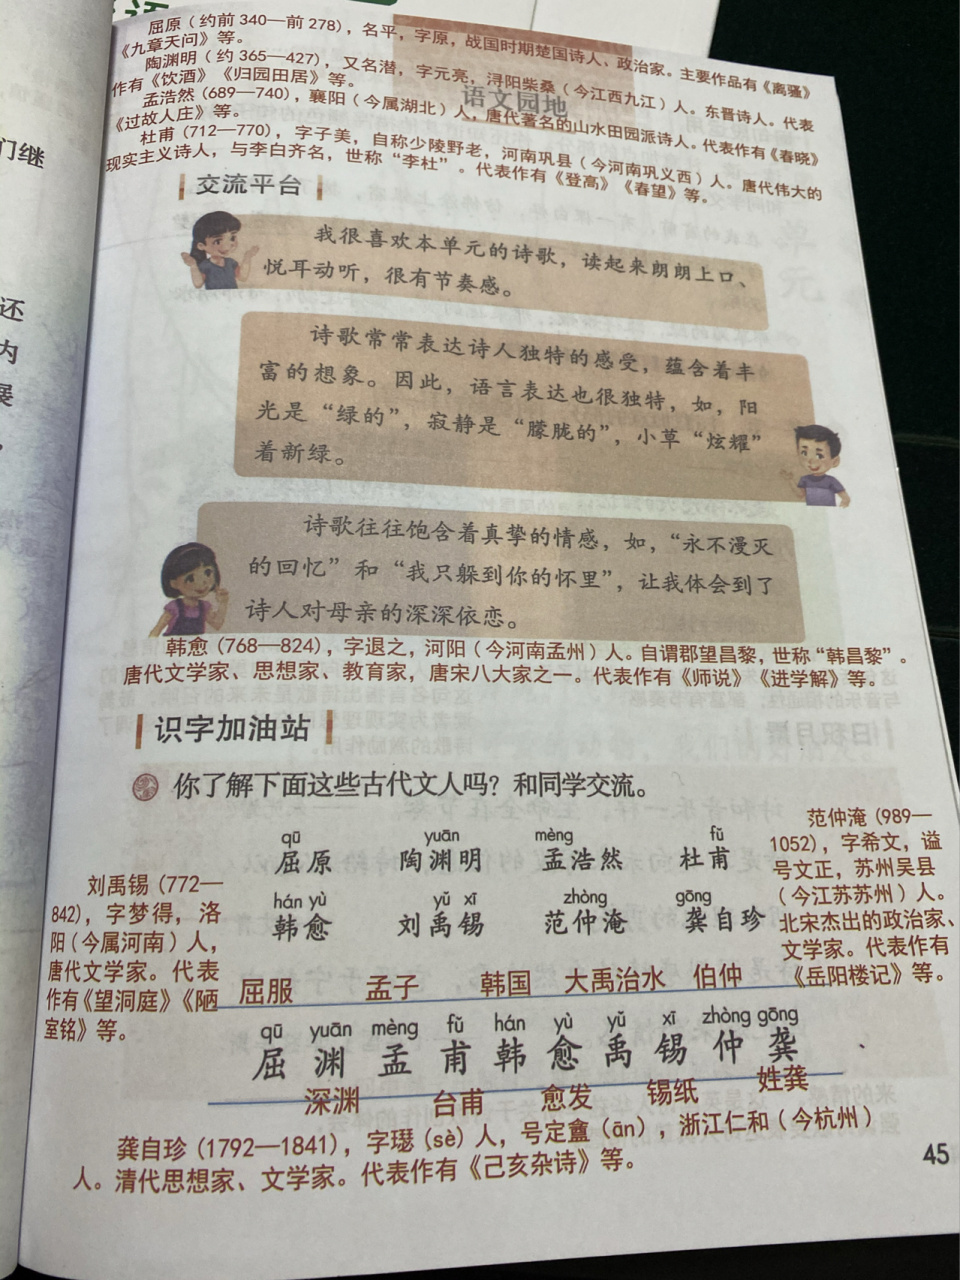 屈原（约前 340—前 278），名平，字原，战国时期楚国诗人、政治家。主要作品有《离骚》
《九章天问》等。
陶渊明（约 365—427），又名潜，字元亮，浔阳柴桑（今江西九江）人。东晋诗人。代表
作有《饮酒》《归园田居》等。
孟浩然（689—740），襄阳（今属湖北）人，唐代著名的山水田园派诗人。代表作有《春晓》
《过故人庄》等。
杜甫（712—770），字子美，自称少陵野老，河南巩县（今河南巩义西）人。唐代伟大的
现实主义诗人，与李白齐名，世称“李杜”。代表作有《登高》《春望》等。
语文园地
们继
还
内
展
交流平台
我很喜欢本单元的诗歌，读起来朗朗上口、
悦耳动听，很有节奏感。
诗歌常常表达诗人独特的感受，蕴含着丰
富的想象。因此，语言表达也很独特，如，阳
光是“绿的”，寂静是“朦胧的”，小草“炫耀”
着新绿。
诗歌往往饱含着真挚的情感，如，“永不漫灭
的回忆”和“我只躲到你的怀里”，让我体会到了
诗人对母亲的深深依恋。
韩愈（768—824），字退之，河阳（今河南孟州）人。自谓郡望昌黎，世称“韩昌黎”。
唐代文学家、思想家、教育家，唐宋八大家之一。代表作有《师说》《进学解》等。
识字加油站
你了解下面这些古代文人吗？和同学交流。
qū yuān mèng fǔ
屈原 陶渊明 孟浩然 杜甫
hán yù yǔ xī zhòng gōng
韩愈 刘禹锡 范仲淹 龚自珍
刘禹锡（772—
842），字梦得，洛
阳（今属河南）人，
唐代文学家。代表
作有《望洞庭》《陋
室铭》等。
范仲淹（989—
1052），字希文，谥
号文正，苏州吴县
（今江苏苏州）人。
北宋杰出的政治家、
文学家。代表作有
《岳阳楼记》等。
屈服 孟子 韩国 大禹治水 伯仲
qū yuān mèng fǔ hán yù yǔ xī zhòng gōng
屈 渊 孟 甫 韩 愈 禹 锡 仲 龚
深渊 台甫 愈发 锡纸 姓龚
龚自珍（1792—1841），字璱（sè）人，号定盦（ān），浙江仁和（今杭州）
人。清代思想家、文学家。代表作有《己亥杂诗》等。
45